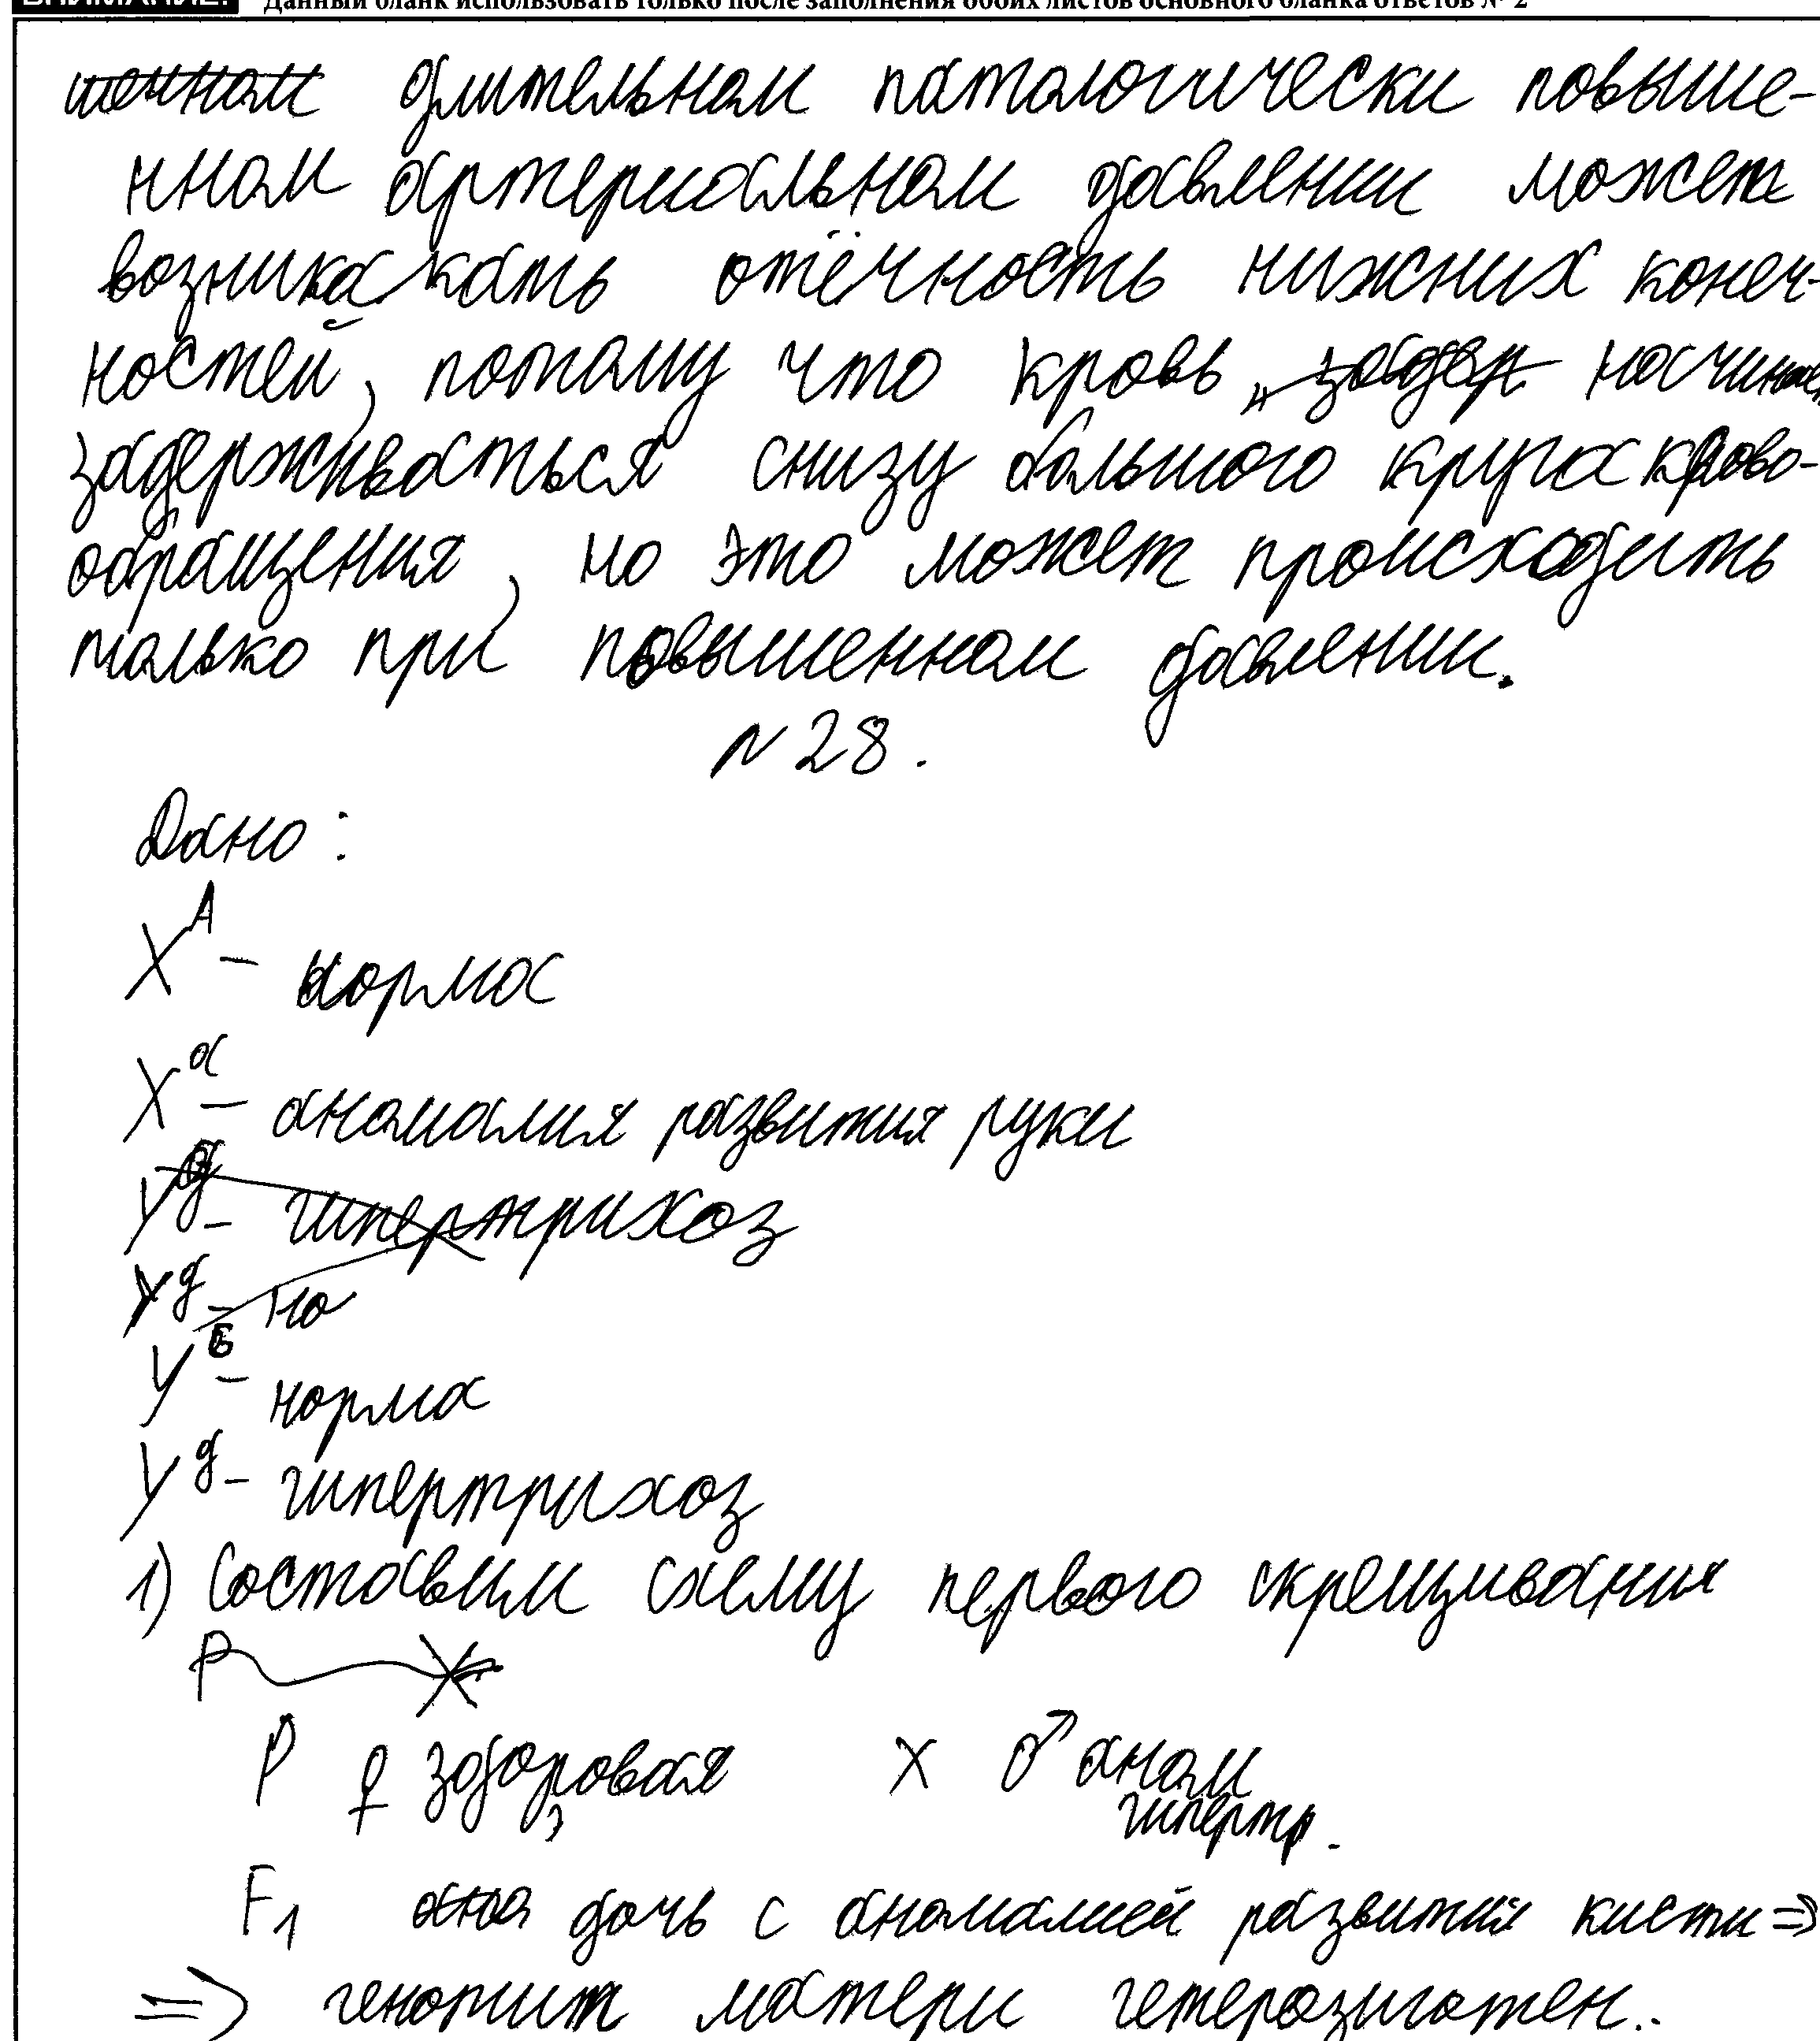 ВНИМАНИЕ! Данный бланк использовать только после заполнения обоих листов основного бланка ответов № 2
длительном патологически повыше-
нном артериальном давлении может
возникакать отёчность нижних конеч-
ностей, потому что кровь, задер начинает
задерживаться снизу большого круга крово-
обращения, но это может происходить
только при повышенном давлении.
N 28.
Дано:
X^A – норма
X^a – аномалия развития руки
Y – гипертрихоз
Y^g – но
Y^Б – норма
Y^g – гипертрихоз
1) Составим схему первого скрещивания
P X
P ♀ здоровая X ♂ аном
гипертр.
F1 одна дочь с аномалией развития кисти =>
=> генотип матери гетерозиготен..